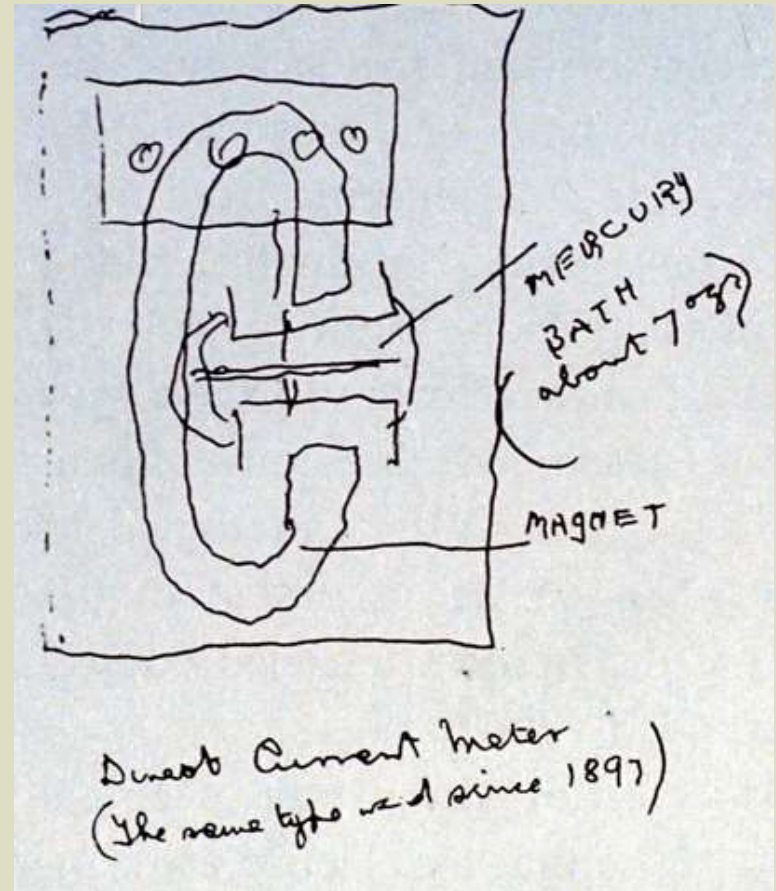 MERCURY
BATH
(about 7 ozs)
MAGNET
Direct Current Meter
(The same type used since 1897)